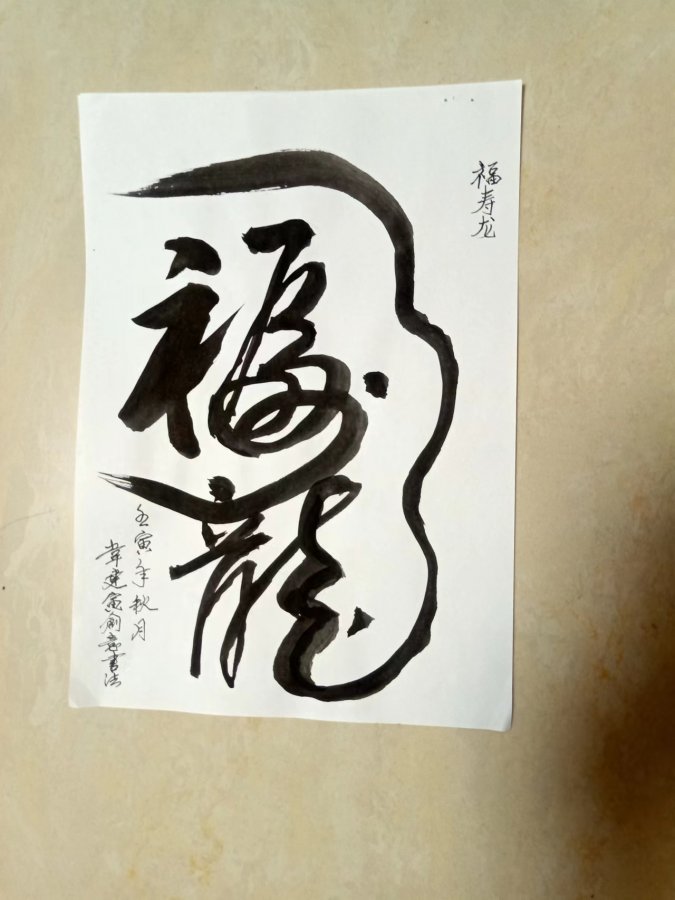 福寿龙
福
龍
壬寅年秋月
韋建寅創意書法